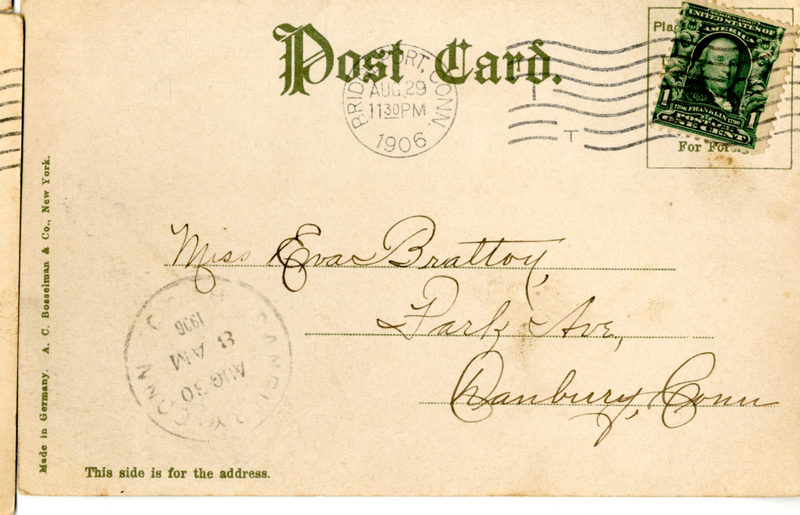 Post Card.
BRIDGEPORT, CONN.
AUG 29
11 30 PM
1906
Pla
UNITED STATES OF
AMERICA
1 1
1706 FRANKLIN 1790
POSTAGE
ONE CENT
For
Miss Eva Bratton,
Park Ave,
Danbury, Conn
DANBURY, CONN
1906
8 AM
AUG 30
Made in Germany. A. C. Bosselman & Co., New York.
This side is for the address.